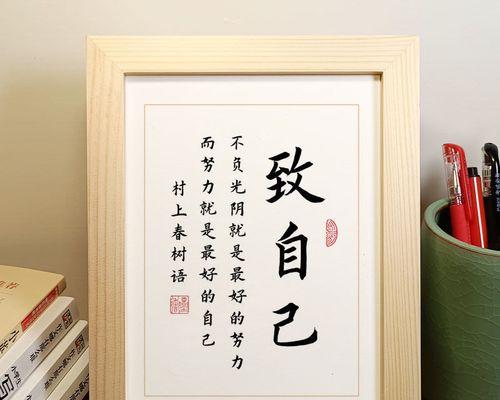 致自己
不负光阴就是最好的努力
而努力就是最好的自己
村上春树语